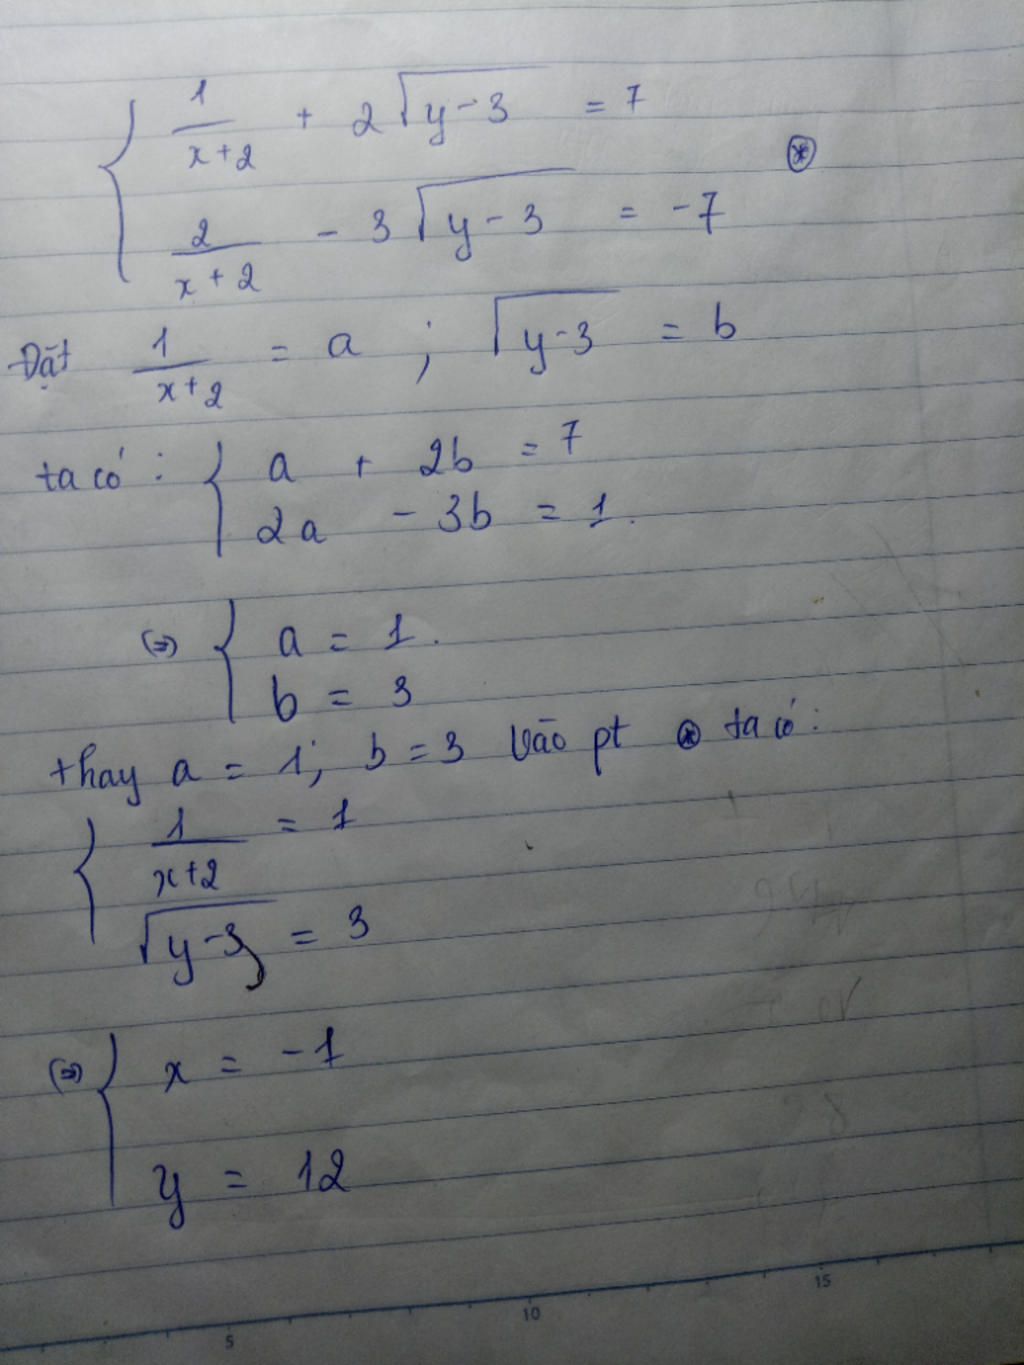 { 1/(x+2) + 2√(y-3) = 7
2/(x+2) - 3√(y-3) = -7 (*)
Đặt 1/(x+2) = a ; √(y-3) = b
ta có : { a + 2b = 7
2a - 3b = 1.
(=) { a = 1.
b = 3
thay a = 1; b = 3 vào pt (*) ta có :
{ 1/(x+2) = 1
√(y-3) = 3
(=) { x = -1
y = 12
5 10 15